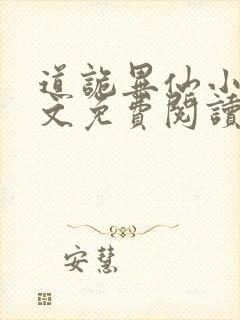 道詭異仙小
文免費閱讀
安慧